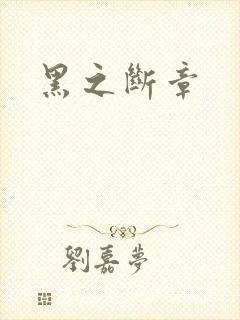 黑之斷章
劉嘉夢